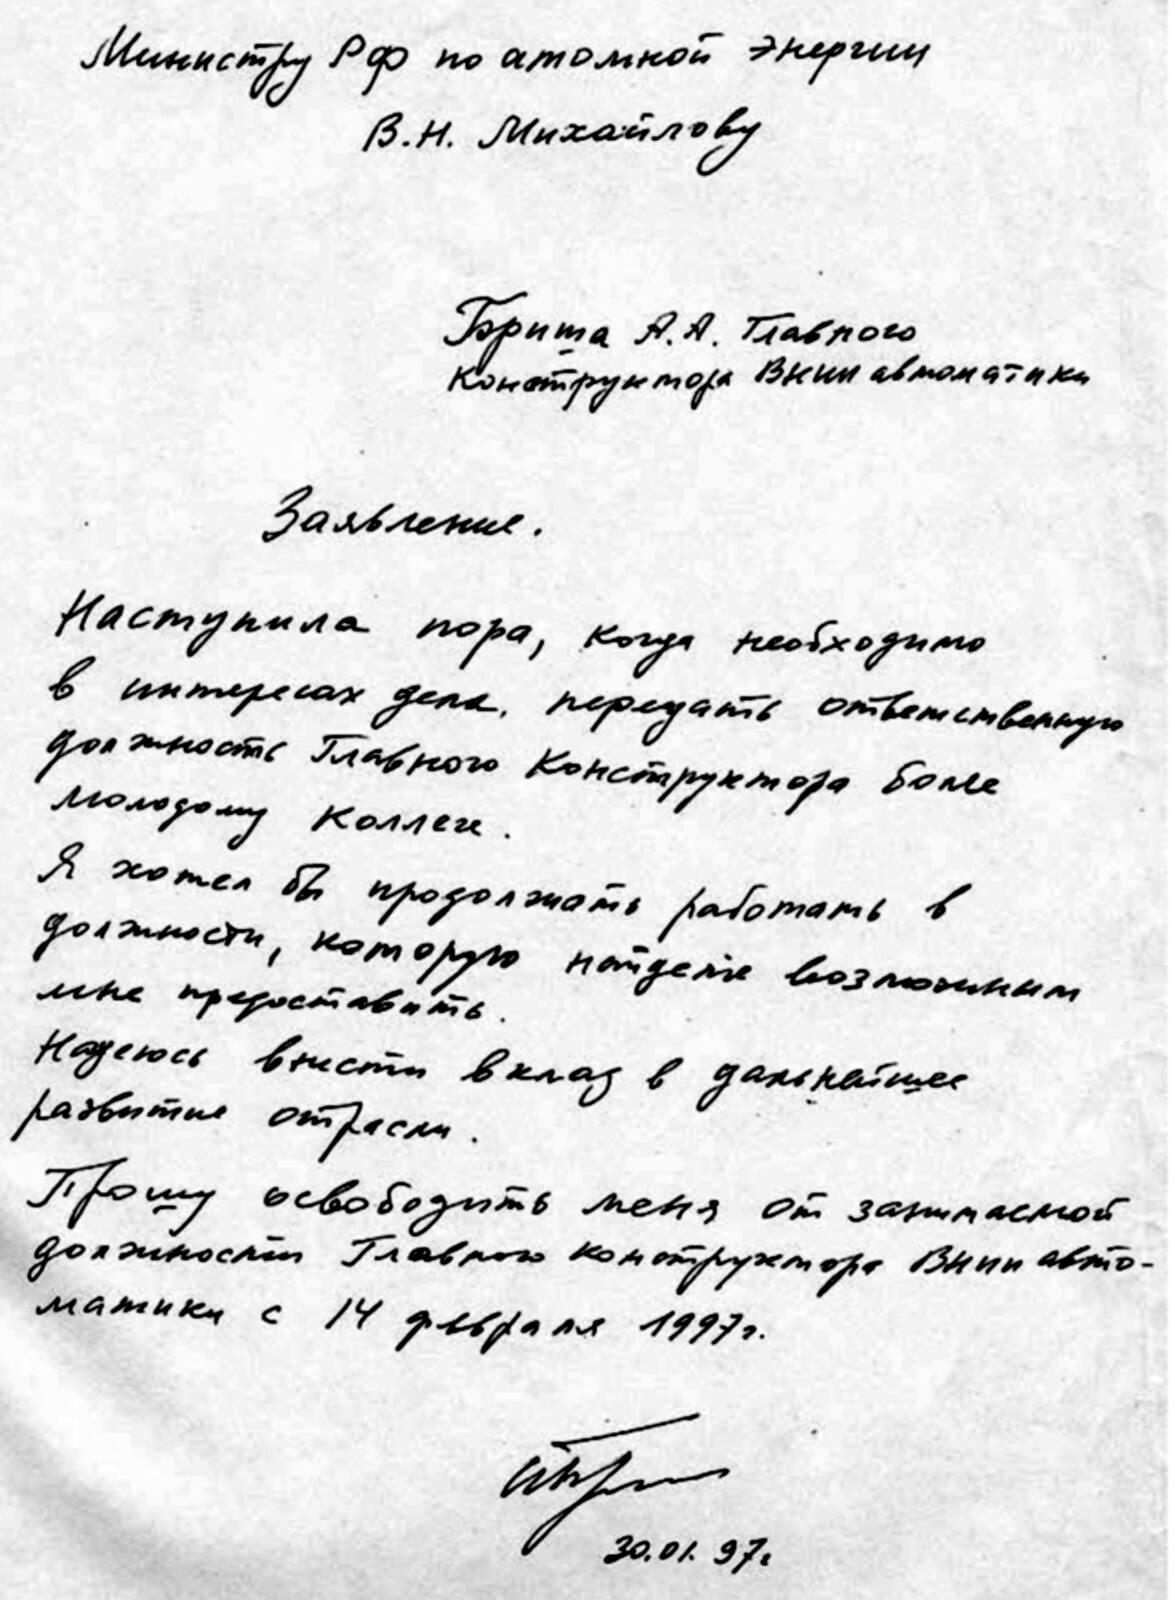 Министру РФ по атомной энергии
В.Н. Михайлову
Бриша А.А. Главного
Конструктора ВНИИ автоматики
Заявление.
Наступила пора, когда необходимо
в интересах дела, передать ответственную
должность Главного Конструктора более
молодому коллеге.
Я хотел бы продолжать работать в
должности, которую найдете возможным
мне предоставить.
Надеюсь внести вклад в дальнейшее
развитие отрасли.
Прошу освободить меня от занимаемой
должности Главного конструктора ВНИИ авто-
матики с 14 февраля 1997г.
30.01.97г.